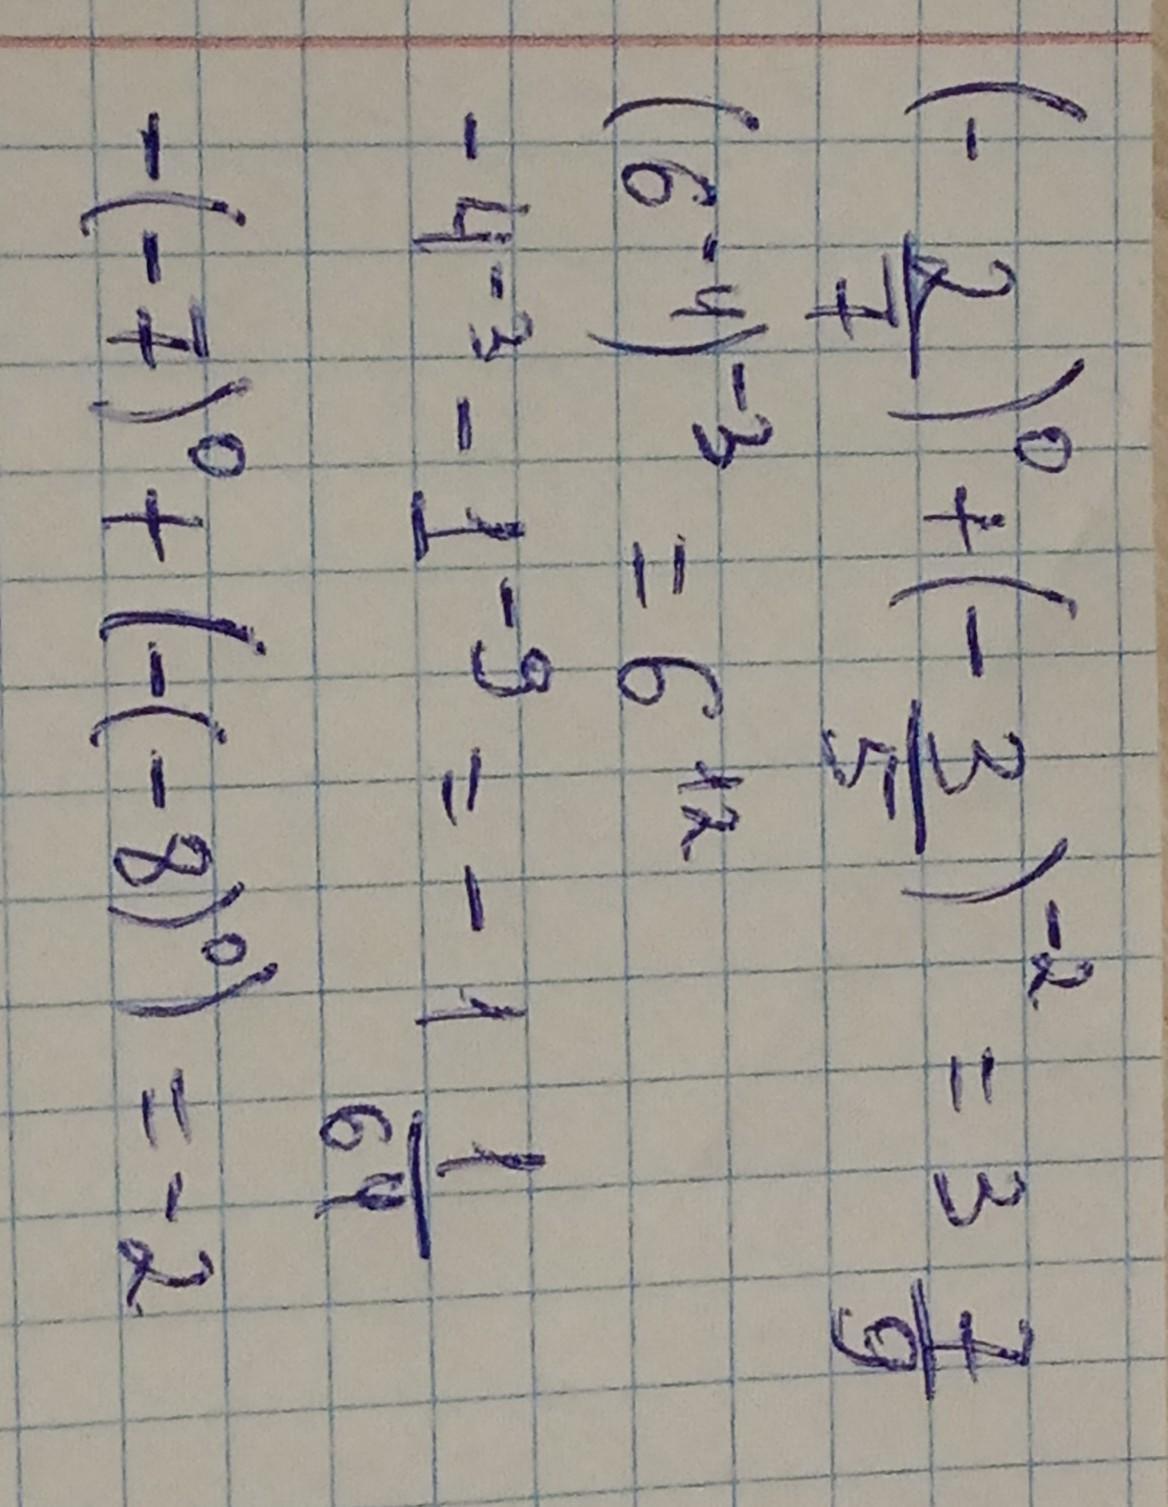 (-2/7)⁰ + (-3/5)⁻² = 3 7/9
(6⁻⁴)⁻³ = 6¹²
-4⁻³ - 1⁻⁹ = -1 1/64
-(-7)⁰ + (-(-8)⁰) = -2